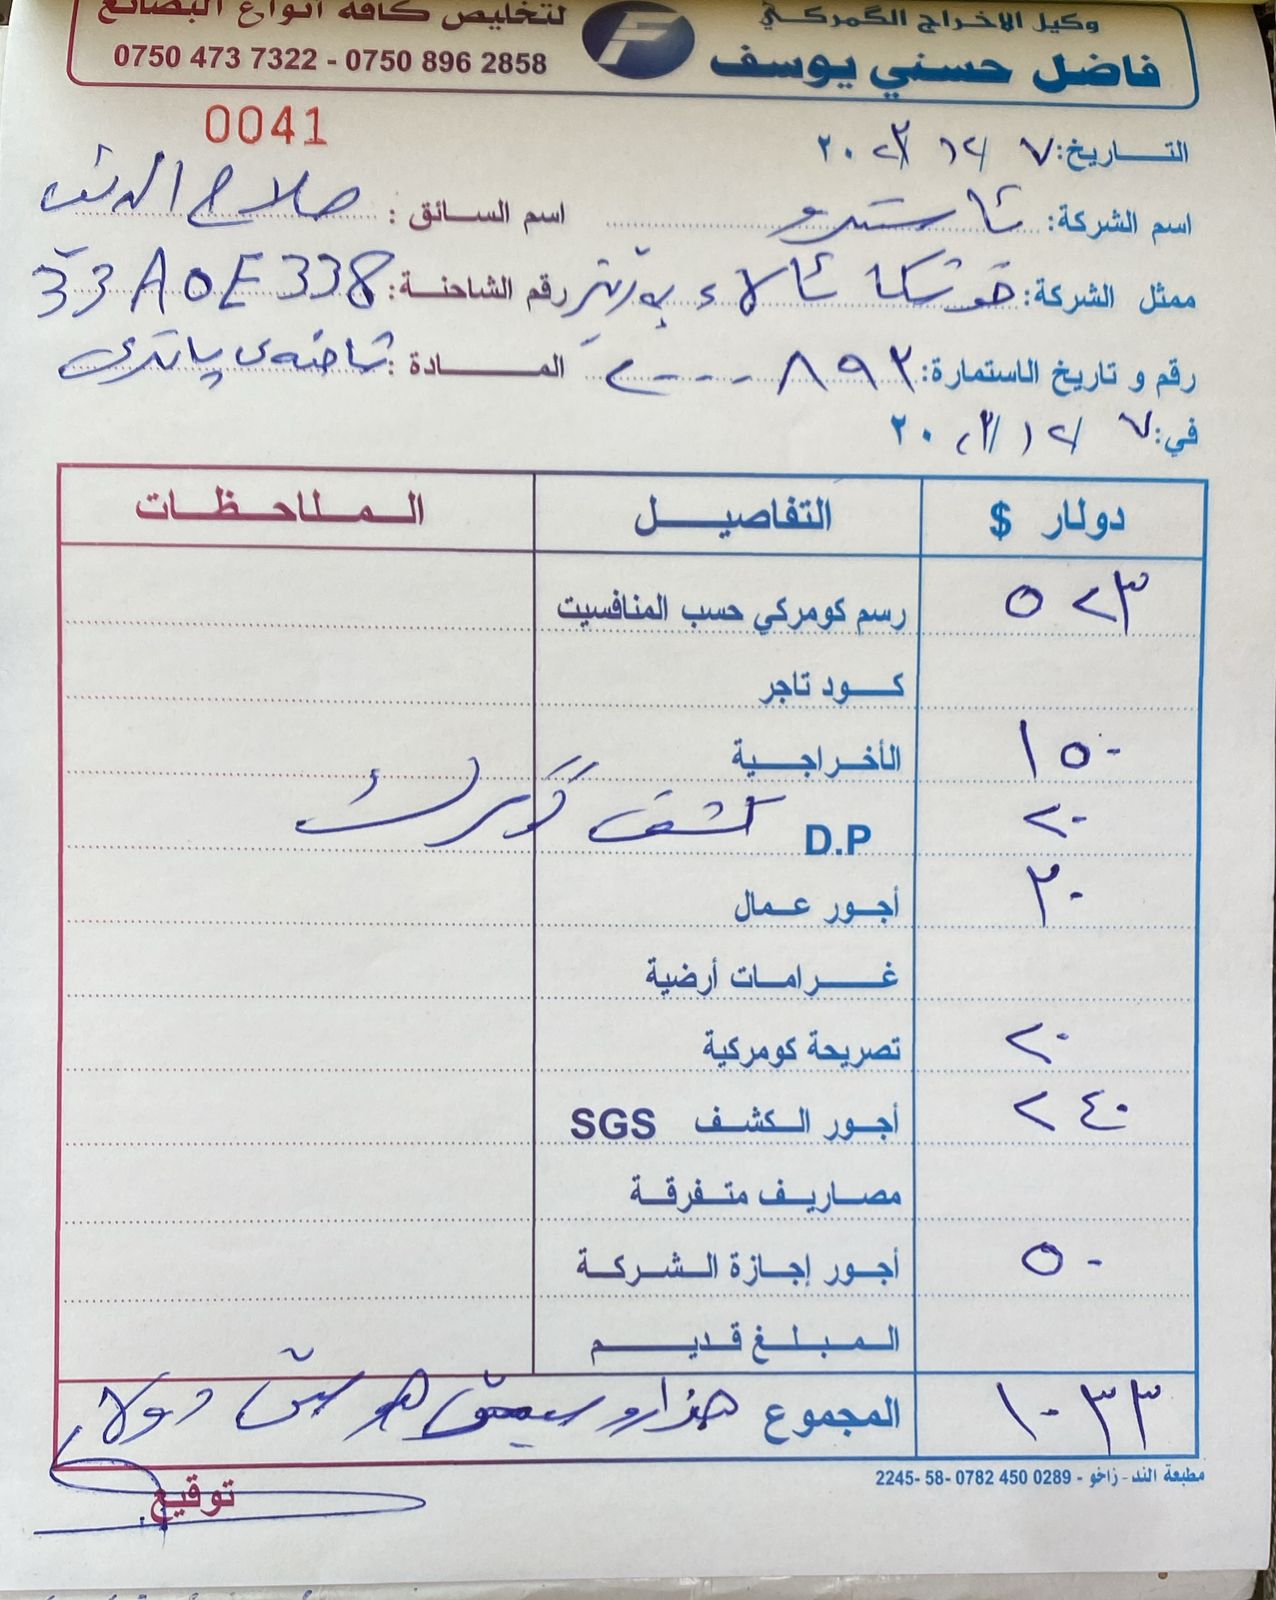 وكيل الاخراج الگمركي
لتخليص كافة انواع البضائع
فاضل حسني يوسف
0750 473 7322 - 0750 896 2858
0041
التاريخ: ٧ / ١٢ / ٢٠٢٢
اسم الشركة: اسم السائق: صلاح الدين
ممثل الشركة: رقم الشاحنة: 33 AOE 338
رقم و تاريخ الاستمارة: المادة:
في: ٧ / ١٢ / ٢٠٢٢
دولار $ التفاصيل الملاحظات
٥٢٣ رسم كومركي حسب المنافسيت
كود تاجر
١٥٠ الأخراجية
٢٠ D.P كشف گومرك
٣٠ أجور عمال
غرامات أرضية
٢٠ تصريحة كومركية
٢٤٠ أجور الكشف SGS
مصاريف متفرقة
٥٠ أجور إجازة الشركة
المبلغ قديم
١٠٣٣ المجموع هزارو دولار
توقيع
مطبعة الند - زاخو - 0289 450 0782 -58 -2245